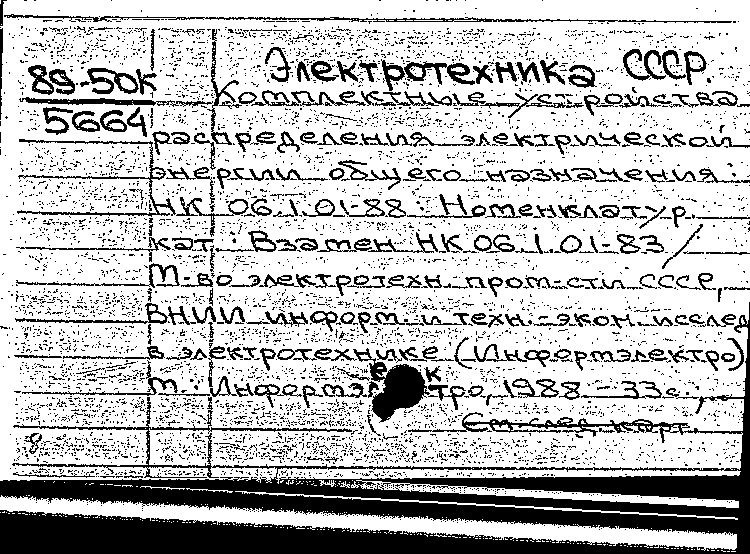 Электротехника СССР.
89-50К
5664
Комплектные устройства
распределения электрической
энергии общего назначения:
НК 06.1.01-88: Номенклатур.
кат.: Взамен НК 06.1.01-83 /
М-во электротехн. пром-сти СССР,
ВНИИ информ. и техн.-экон. исслед
в электротехнике (Информэлектро)
М.: Информэлектро, 1988 - 33с.;
См. след. карт.
8